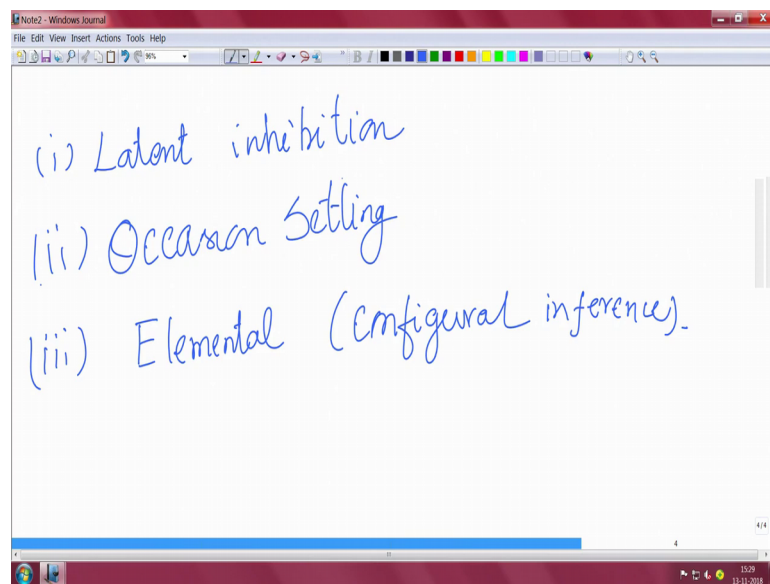 Note2 - Windows Journal
File Edit View Insert Actions Tools Help
96%
B I
(i) Latent inhibition
(ii) Occasion Setting
(iii) Elemental (configural inference).
4/4
4
15:29
13-11-2018